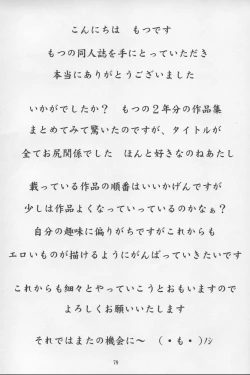 こんにちは　もつです
もつの同人誌を手にとっていただき
本当にありがとうございました
いかがでしたか？　もつの２年分の作品集
まとめてみて驚いたのですが、タイトルが
全てお尻関係でした　ほんと好きなのねあたし
載っている作品の順番はいいかげんですが
少しは作品よくなっていっているのかなぁ？
自分の趣味に偏りがちですがこれからも
エロいものが描けるようにがんばっていきたいです
これからも細々とやっていこうとおもいますので
よろしくお願いいたします
それではまたの機会に～　（・も・）ﾉｼ
79